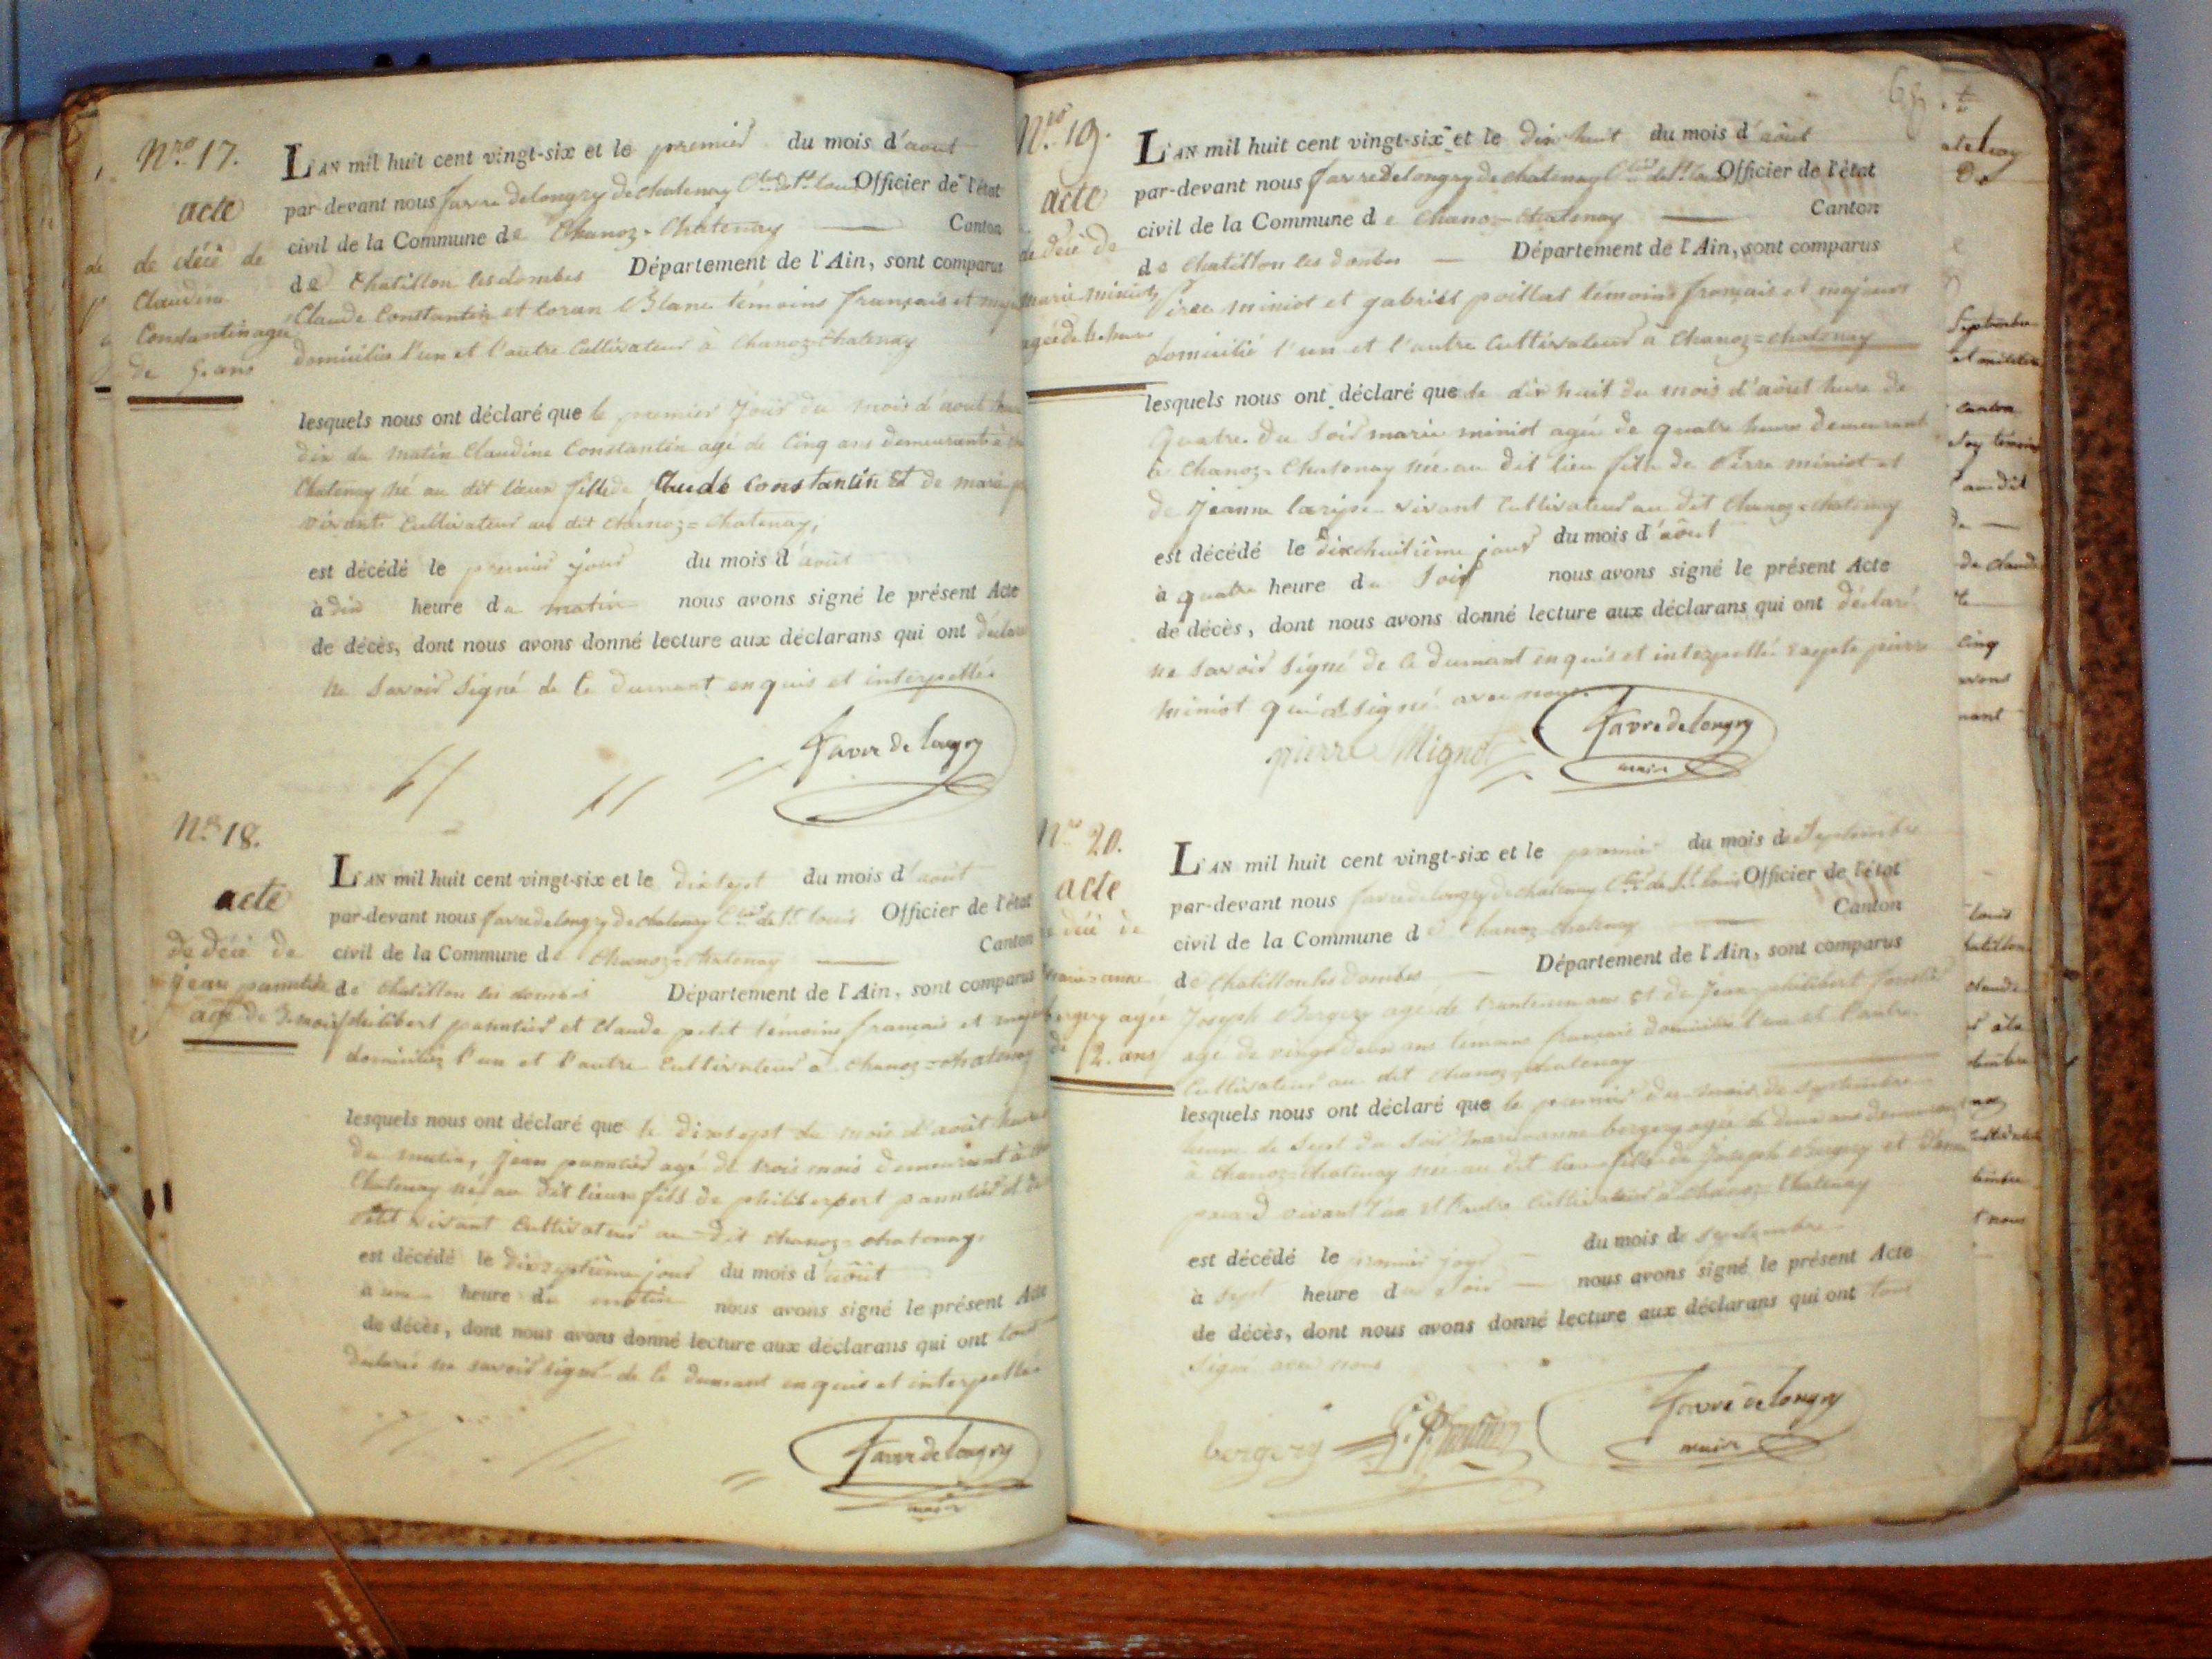 Nro 17.
acte
de décè de
Claudine
Constantin agée
de 5. ans
L'AN mil huit cent vingt-six et le premier du mois d'aout
par-devant nous favre delongry de chatenay Officier de l'état
civil de la Commune de Chanoz-Chatenay Canton
de Chatillon les dombes Département de l'Ain, sont comparus
Claude Constantin et toran Blanc témoins français et
domiciliés l'un et l'autre Cultivateur à Chanoz Chatenay
lesquels nous ont déclaré que le premier jour du mois d'aout
dix du matin Claudine Constantin agé de Cinq ans demeurant à
Chatenay né au dit lieux fille de Claude Constantin Et de marie
vivants Cultivateur au dit Chanoz=Chatenay,
est décédé le premier jour du mois d'août
à dix heure du matin nous avons signé le présent Acte
de décès, dont nous avons donné lecture aux déclarans qui ont déclaré
ne savoir signé de Ce dument enquis et interpellés
favre de longry
Nro 18.
acte
de décè de
jean panntier
agé de 3. mois
L'AN mil huit cent vingt-six et le dixsept du mois d'août
par-devant nous favre delongry de chatenay Cer de St Louis Officier de l'état
civil de la Commune de Chanoz=Chatenay Canton
de Chatillon les dombes Département de l'Ain, sont comparus
philibert panntier et Claude petit témoins français et
domiciliez l'un et l'autre Cultivateur à Chanoz=chatenay
lesquels nous ont déclaré que le dixsept du mois d'août
du matin, jean panntier agé de trois mois demeurant à
Chatenay né au dit lieux fils de philiberpert panntier et
Petit vivant Cultivateur au dit Chanoz=chatenay.
est décédé le dixseptième jour du mois d'août
à une heure du matin nous avons signé le présent Acte
de décès, dont nous avons donné lecture aux déclarans qui ont tous
déclaré ne savoir signé de Ce dument enquis et interpellés
favre de longry
maire
Nro 19.
acte
de décè de
marie miniot
agée de 4. heures
L'AN mil huit cent vingt-six et le dix huit du mois d'août
par-devant nous favre delongry de chatenay Cer de St Louis Officier de l'état
civil de la Commune de Chanoz-Chatenay Canton
de Chatillon les dombes Département de l'Ain, sont comparus
Pirre miniot et gabriel poillat témoins français et majeurs
domicilié l'un et l'autre Cultivateur à Chanoz=chatenay
lesquels nous ont déclaré que le dix huit du mois d'août hure de
Quatre du Soir marie miniot agée de quatre heures demeurant
à Chanoz-Chatenay née au dit lieu fille de Pirre miniot et
de jeanne vivant Cultivateur au dit Chanoz=chatenay
est décédé le dixehuitième jour du mois d'août
à quatre heure du Soir nous avons signé le présent Acte
de décès, dont nous avons donné lecture aux déclarans qui ont déclaré
ne savoir signé de Ce dument enquis et interpellé Exepté pierre
miniot qui à signé avec nous.
pierre Mignot
favre de longry
maire
Nro 20.
acte
de décè de
marie=anne
bergery agée
de 2. ans
L'AN mil huit cent vingt-six et le premier du mois de Septembre
par-devant nous favre delongry de chatenay Cer de St Louis Officier de l'état
civil de la Commune de Chanoz chatenay Canton
de Chatillon les dombes Département de l'Ain, sont comparus
Joseph Bergery agé de trente un ans Et de Jean philibert
agé de vingt deux ans témoins français domiciliés l'un et l'autre
Cultivateur au dit Chanoz chatenay
lesquels nous ont déclaré que le premier du mois de Septembre
heure de Sept du Soir marie anne bergery agée de deux ans demeurant
à Chanoz-Chatenay née au dit lieu fille de Joseph Bergery et
vivant l'un et l'autre Cultivateur à Chanoz Chatenay
est décédé le premier jour du mois de septembre
à sept heure du soir nous avons signé le présent Acte
de décès, dont nous avons donné lecture aux déclarans qui ont tous
Signé avec nous
bergery
favre de longry
maire